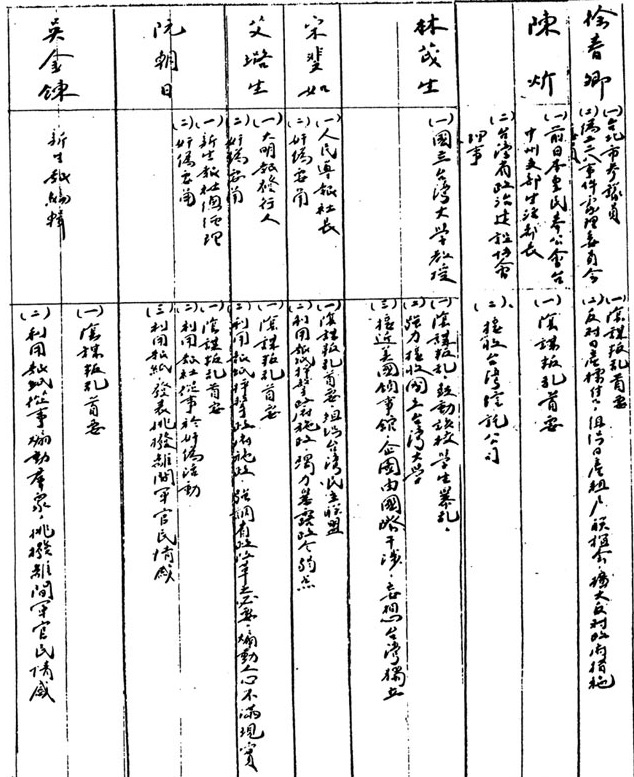 徐春卿
(一)台北市參議員
(二)偽二二八事件處理委員會
(一)陰謀叛乱首要
(二)反對日產標售，組織日產租戶联誼會，擴大反対政府措施
陳炘
(一)前日本皇民奉公會台中州支部生活部長
(二)台湾省政治建設協會理事
(一)陰謀叛乱首要
(二)接收台湾信託公司
林茂生
(一)國立台湾大学教授
(一)陰謀叛乱，鼓動該校学生暴乱，
(二)强力接收国立台湾大学
(三)接近美國領事館，企図由國際干涉，妄想台湾獨立
宋斐如
(一)人民導報社長
(二)奸偽要角
(一)陰謀叛乱首要，組織台湾民主联盟
(二)利用報紙抨擊政府施政，獨力暴露政令弱点
艾璐生
(一)大明報發行人
(二)奸偽要角
(一)陰謀叛乱首要
(二)利用報紙抨擊政府施政，强調有政治改革之必要，煽動人心不滿現實
阮朝日
(一)新生報社總経理
(二)奸偽要角
(一)陰謀叛乱首要
(二)利用報社從事於奸偽活動
(三)利用報紙發表挑撥離間軍官民情感
吳金鍊
新生報編輯
(一)陰謀叛乱首要
(二)利用報紙從事煽動羣衆，挑撥離間軍官民情感